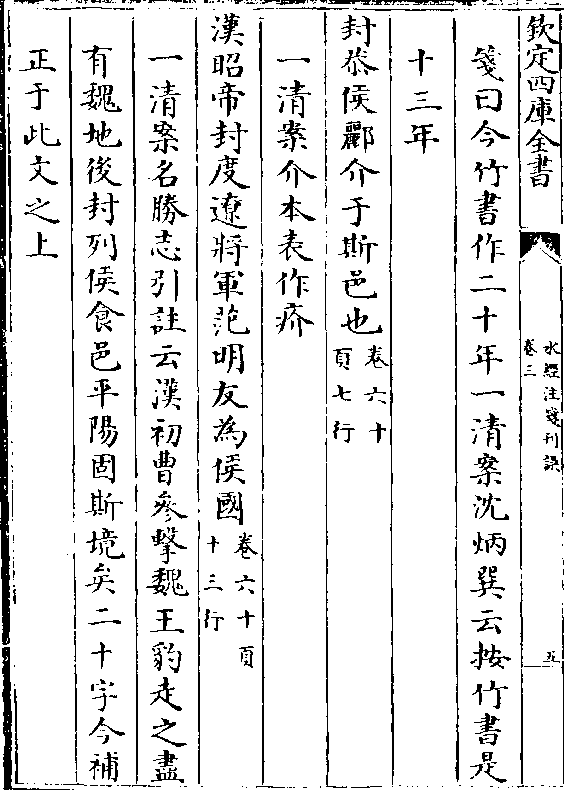 欽定四庫全書
水經注箋刊誤
卷三
五
箋曰今竹書作二十年一清案沈炳巽云按竹書是
十三年
封恭侯酈介于斯邑也卷六十
頁七行
一清案介本表作疥
漢昭帝封度遼將軍范明友為侯國卷六十頁
十三行
一清案名勝志引註云漢初曹參擊魏王豹走之盡
有魏地後封列侯食邑平陽固斯境矣二十字今補
正于此文之上